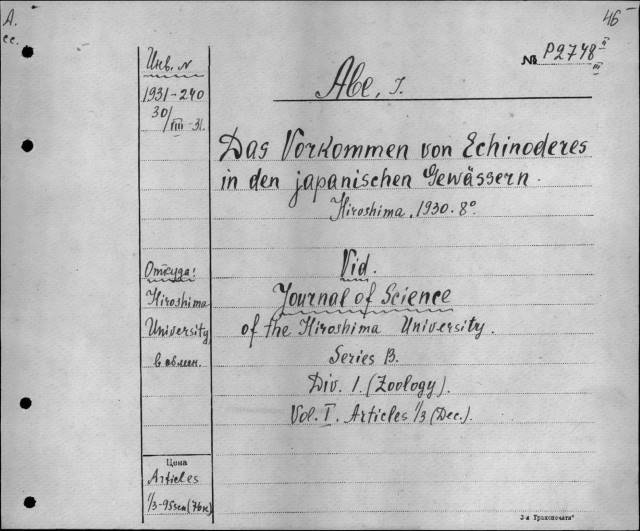 A.
cc.
46
№ P2748 II
III
Abe, J.
Инв. N
1931-240
30/VIII-31.
Das Vorkommen von Echinoderes
in den japanischen Gewässern.
Hiroshima. 1930. 8°
Откуда:
Hiroshima
University
в обмен.
Vid.
Journal of Science
of the Hiroshima University.
Series B.
Div. 1. (Zoology).
Vol. I. Articles 1/3 (Dec.).
Цена
Articles
1/3-95sen (76к)